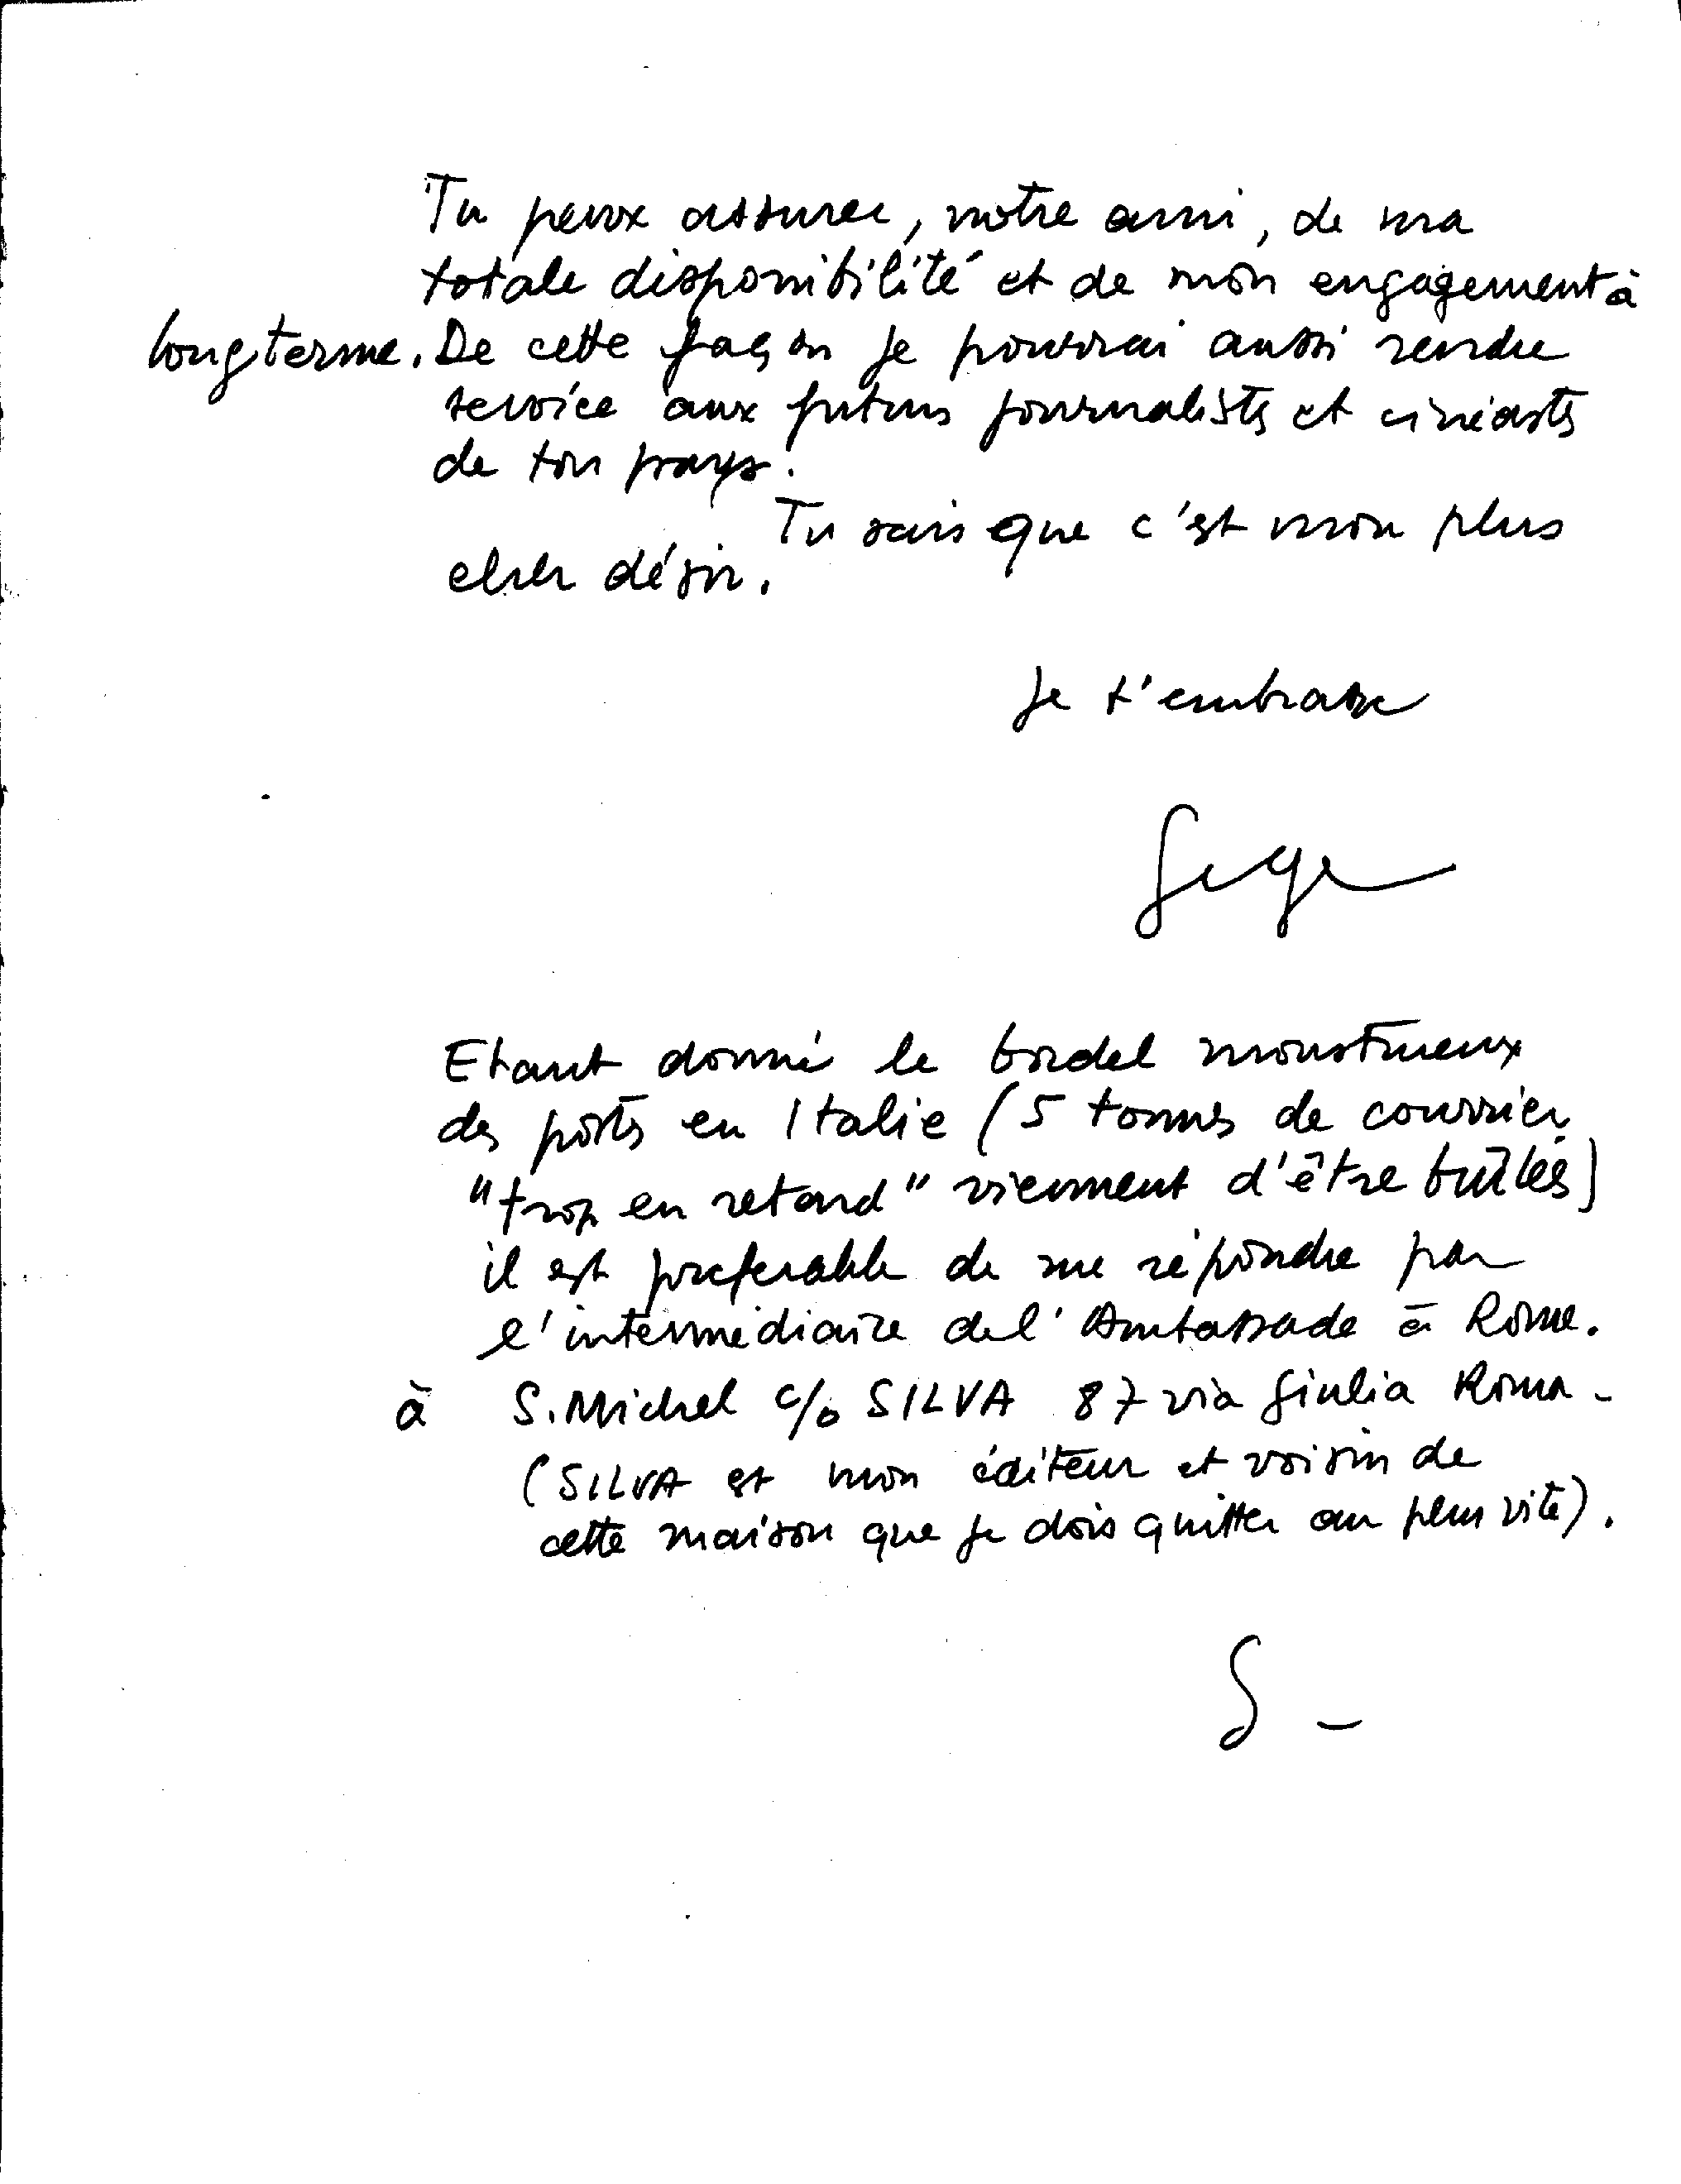 Tu peux assurer, notre ami, de ma
totale disponibilité et de mon engagement à
long terme. De cette façon je pourrai aussi rendre
service aux futurs journalistes et cinéastes
de ton pays.
Tu sais que c'est mon plus
cher désir.
Je t'embrasse
Serge
Etant donné le bordel monstrueux
des postes en Italie (5 tonnes de courrier
"trop en retard" viennent d'être brûlés)
il est preferable de me répondre par
l'intermédiaire de l'Ambassade à Rome.
à S. Michel c/o SILVA 87 via Giulia Roma -
(SILVA est mon éditeur et voisin de
cette maison que je dois quitter au plus vite).
S -